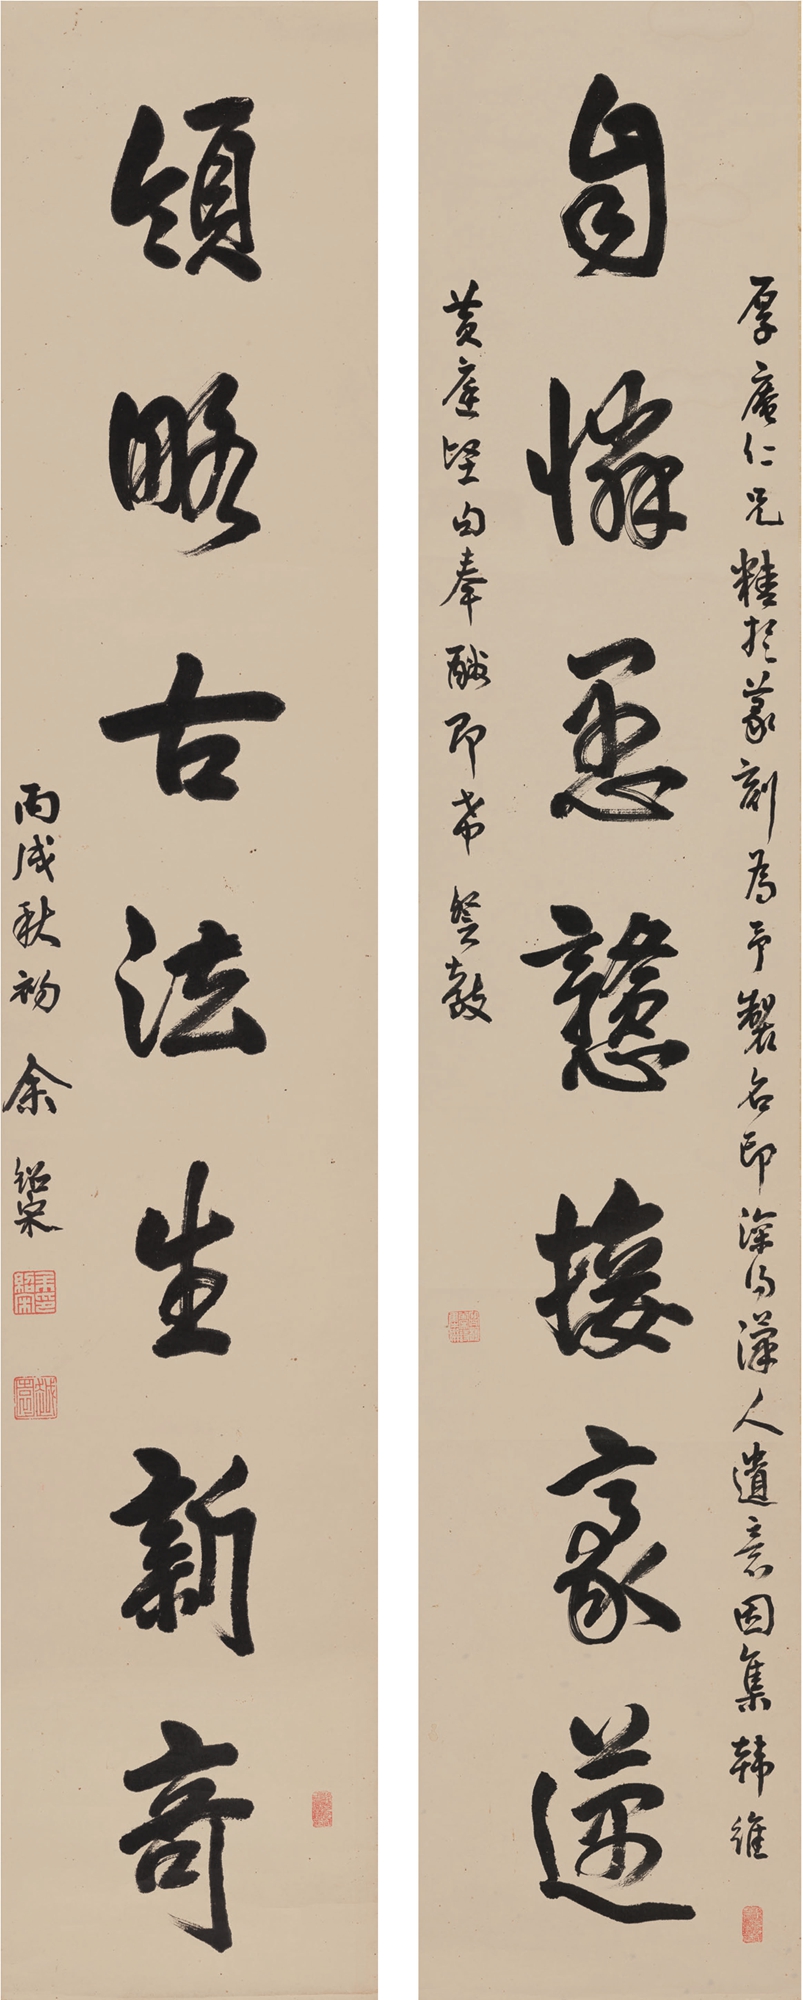 厚庵仁兄精於篆刻為予製名印深得漢人遺意因集韓維
自憐愚戇接豪邁
黃庭堅句奉酬即希詧教
領略古法生新奇
丙戌秋初余紹宋
余紹宋印
越園